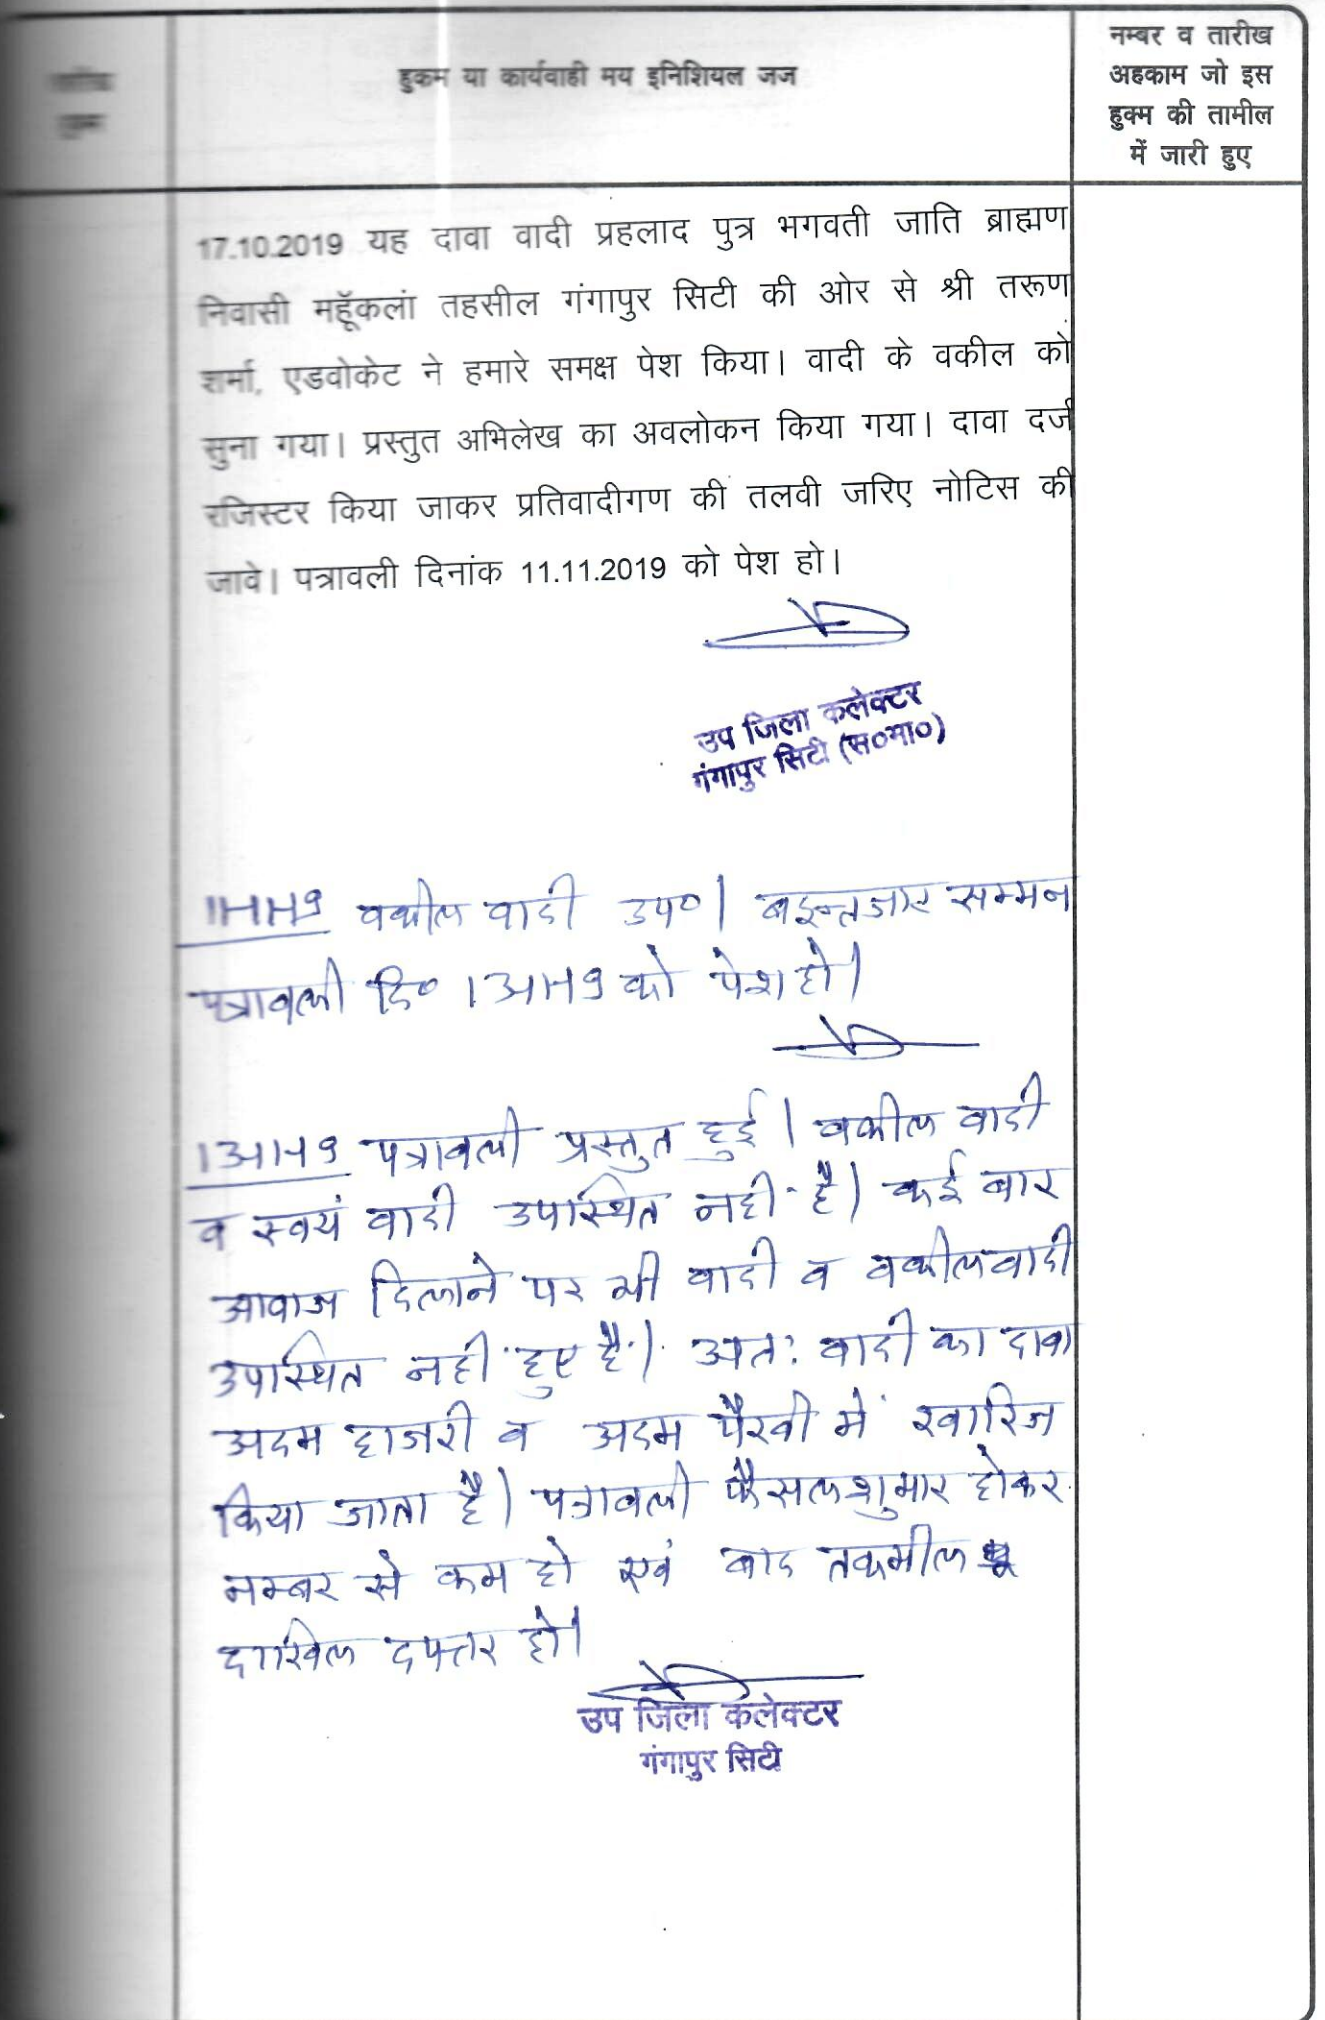 हुकम या कार्यवाही मय इनिशियल जज
नम्बर व तारीख
अहकाम जो इस
हुक्म की तामील
में जारी हुए
17.10.2019 यह दावा वादी प्रहलाद पुत्र भगवती जाति ब्राह्मण
निवासी महूॅकलां तहसील गंगापुर सिटी की ओर से श्री तरूण
शर्मा, एडवोकेट ने हमारे समक्ष पेश किया। वादी के वकील को
सुना गया। प्रस्तुत अभिलेख का अवलोकन किया गया। दावा दर्ज
रजिस्टर किया जाकर प्रतिवादीगण की तलवी जरिए नोटिस की
जावे। पत्रावली दिनांक 11.11.2019 को पेश हो।
उप जिला कलेक्टर
गंगापुर सिटी (स०मा०)
वकील वादी उप०। बइन्तजार सम्मन
पत्रावली दि० को पेश हो।
पत्रावली प्रस्तुत हुई। वकील वादी
व स्वयं वादी उपस्थित नही है। कई बार
आवाज दिलाने पर भी वादी व वकील वादी
उपस्थित नही हुए है। अतः वादी का दावा
अदम हाजरी व अदम पैरवी में खारिज
किया जाता है। पत्रावली फैसलशुमार होकर
नम्बर से कम हो एवं बाद तकमील
दाखिल दफ्तर हो।
उप जिला कलेक्टर
गंगापुर सिटी